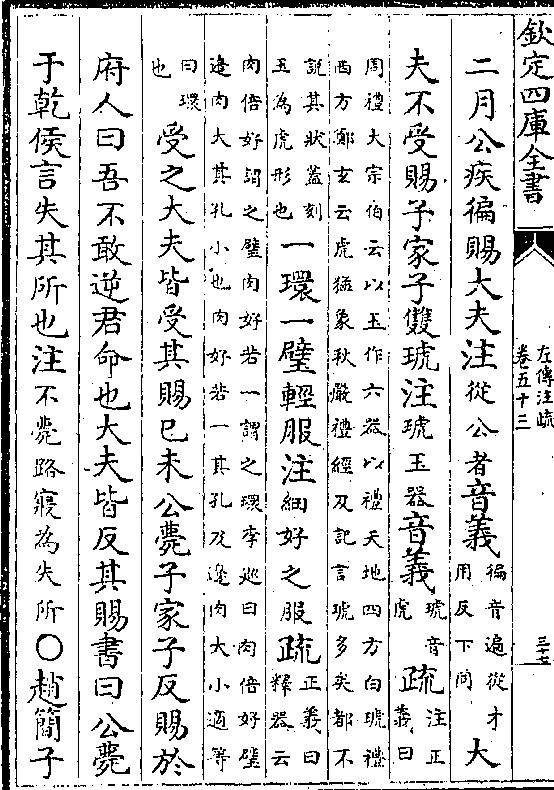 欽定四庫全書
左傳注疏
卷五十三
二月公疾徧賜大夫注從公者音義徧音遍從才用反下同大
夫不受賜子家子雙琥注琥玉器音義琥音虎疏注正義曰
周禮大宗伯云以玉作六器以禮天地四方白琥禮
西方鄭玄云虎猛象秋嚴禮經及記言琥多矣都不
說其狀蓋刻玉為虎形也一環一璧輕服注細好之服疏正義曰釋器云
肉倍好謂之璧肉好若一謂之環李巡曰肉倍好璧
邊肉大其孔小也肉好若一其孔及邊肉大小適等
曰環也受之大夫皆受其賜已未公薨子家子反賜於
府人曰吾不敢逆君命也大夫皆反其賜書曰公薨
于乾侯言失其所也注不薨路寢為失所○趙簡子